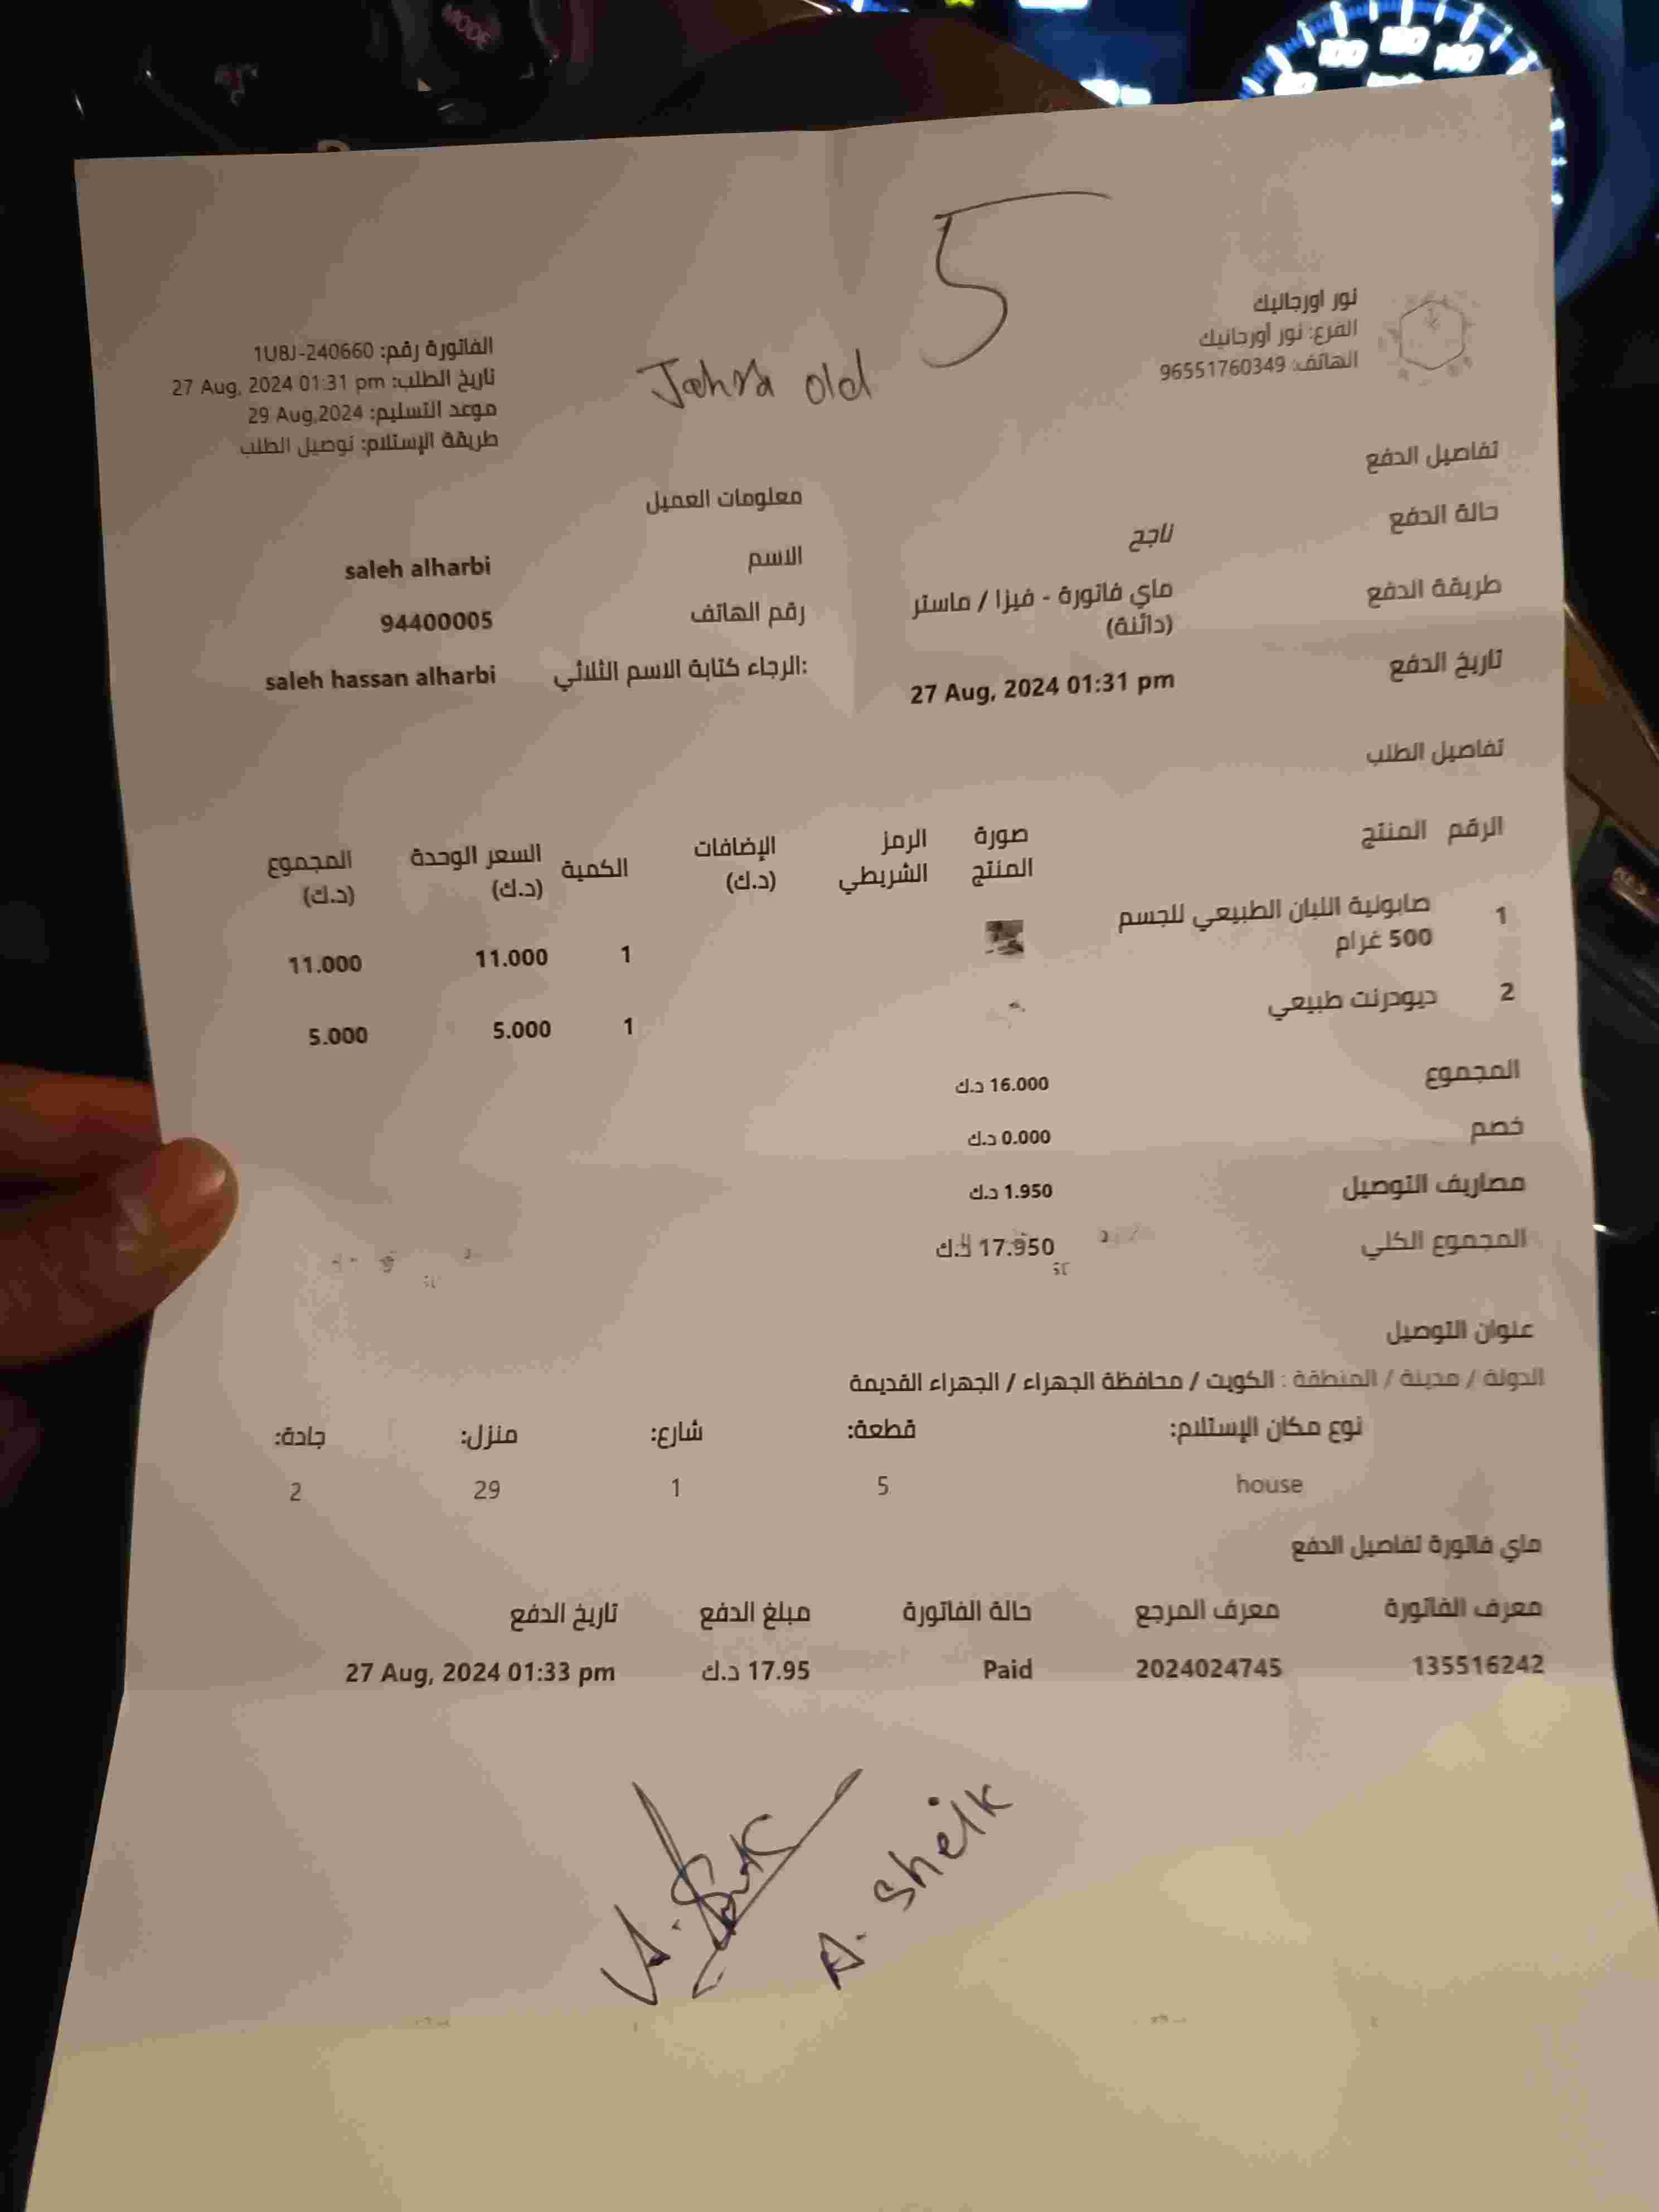 MODE
100 120 140
5
Jahra old
نور اورجانيك
الفرع: نور أورجانيك
الهاتف: 96551760349
الفاتورة رقم: 1U8J-240660
تاريخ الطلب: 27 Aug, 2024 01:31 pm
موعد التسليم: 29 Aug,2024
طريقة الإستلام: توصيل الطلب
تفاصيل الدفع
حالة الدفع ناجح
طريقة الدفع ماي فاتورة - فيزا / ماستر
(دائنة)
تاريخ الدفع 27 Aug, 2024 01:31 pm
معلومات العميل
الاسم saleh alharbi
رقم الهاتف 94400005
الرجاء كتابة الاسم الثلاثي: saleh hassan alharbi
تفاصيل الطلب
الرقم المنتج صورة المنتج الرمز الشريطي الإضافات (د.ك) الكمية السعر الوحدة (د.ك) المجموع (د.ك)
1 صابونية اللبان الطبيعي للجسم 1 11.000 11.000
500 غرام
2 ديودرنت طبيعي 1 5.000 5.000
المجموع 16.000 د.ك
خصم 0.000 د.ك
مصاريف التوصيل 1.950 د.ك
المجموع الكلي 17.950 د.ك
عنوان التوصيل
الدولة / مدينة / المنطقة : الكويت / محافظة الجهراء / الجهراء القديمة
نوع مكان الإستلام: قطعة: شارع: منزل: جادة:
house 5 1 29 2
ماي فاتورة تفاصيل الدفع
معرف الفاتورة معرف المرجع حالة الفاتورة مبلغ الدفع تاريخ الدفع
135516242 2024024745 Paid 17.95 د.ك 27 Aug, 2024 01:33 pm
A. Sheik